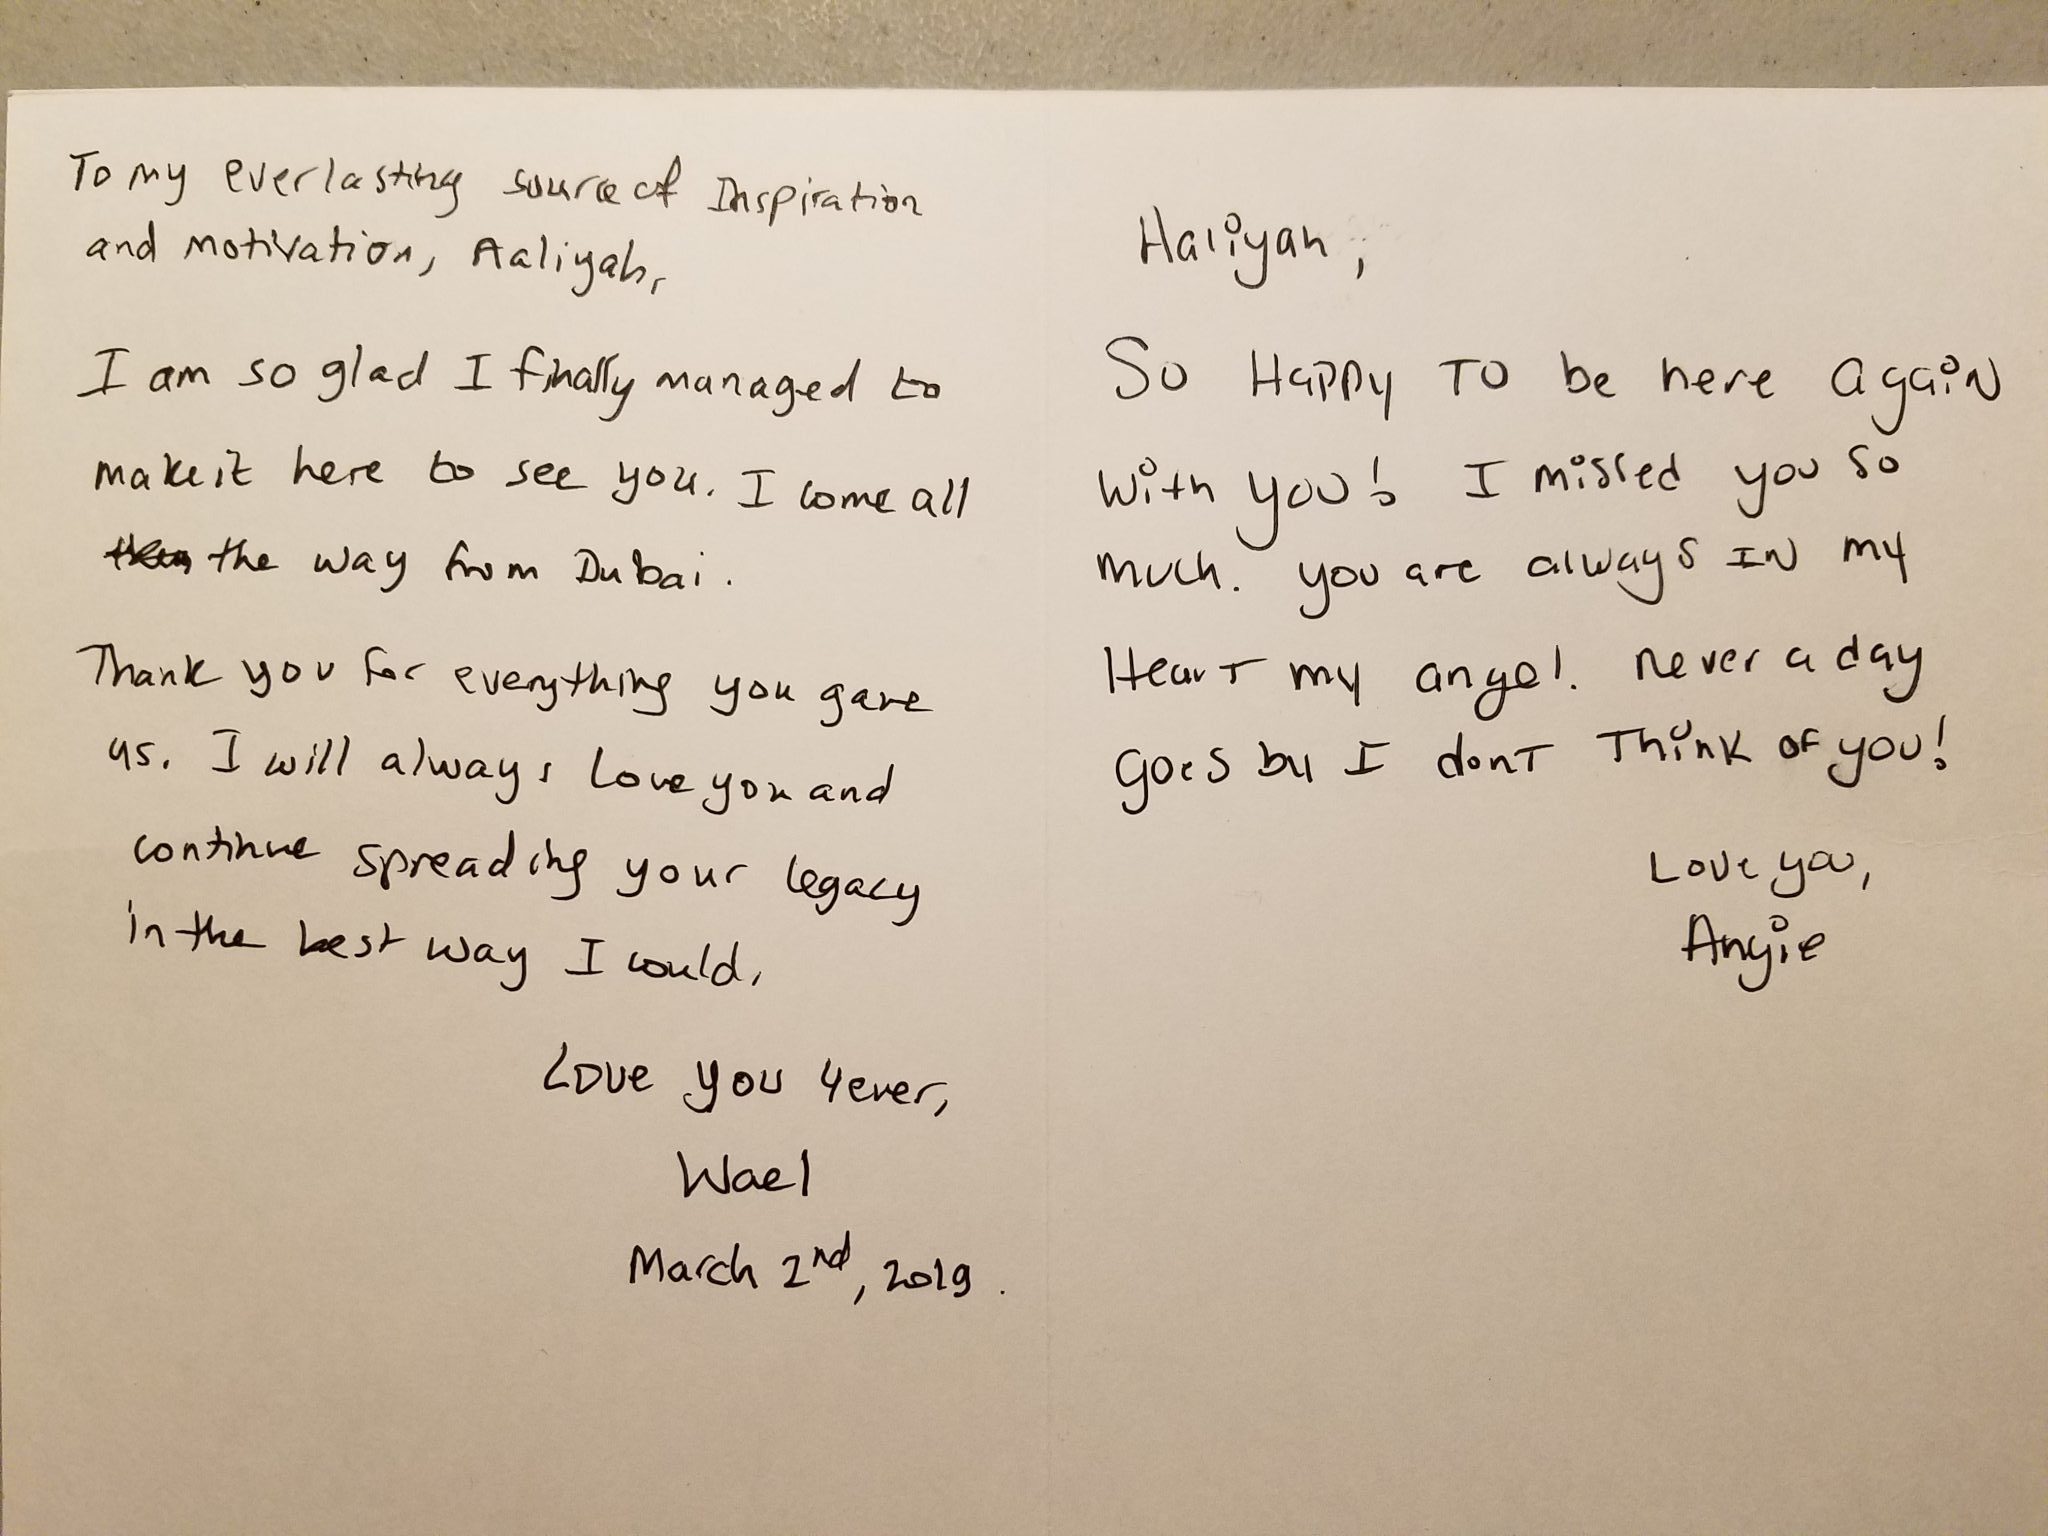 To my everlasting source of Inspiration
and motivation, Aaliyah,
I am so glad I finally managed to
make it here to see you. I come all
the way from Dubai.
Thank you for everything you gave
us. I will always love you and
continue spreading your legacy
in the best way I could.
Love you 4ever,
Wael
March 2nd, 2019.
Aaliyah,
So Happy TO be here again
with you! I missed you so
much. you are always IN my
Heart my angel. never a day
goes by I dont Think of you!
Love you,
Angie